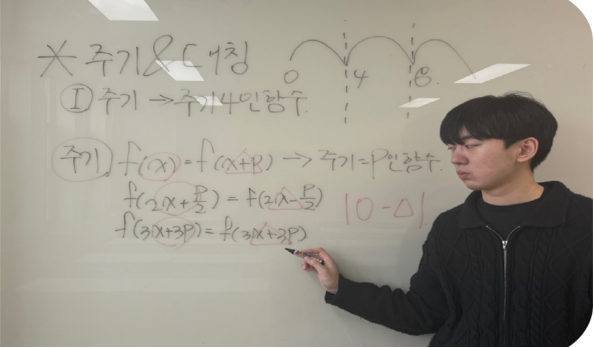 * 주기&대칭
0 4 8.
① 주기 → 주기4인함수.
주기, f(x) = f(x+p) → 주기=p인함수.
f(2x+p/2) = f(2x-p/2) |O-△|
f(3x+3p) = f(3x+3p)